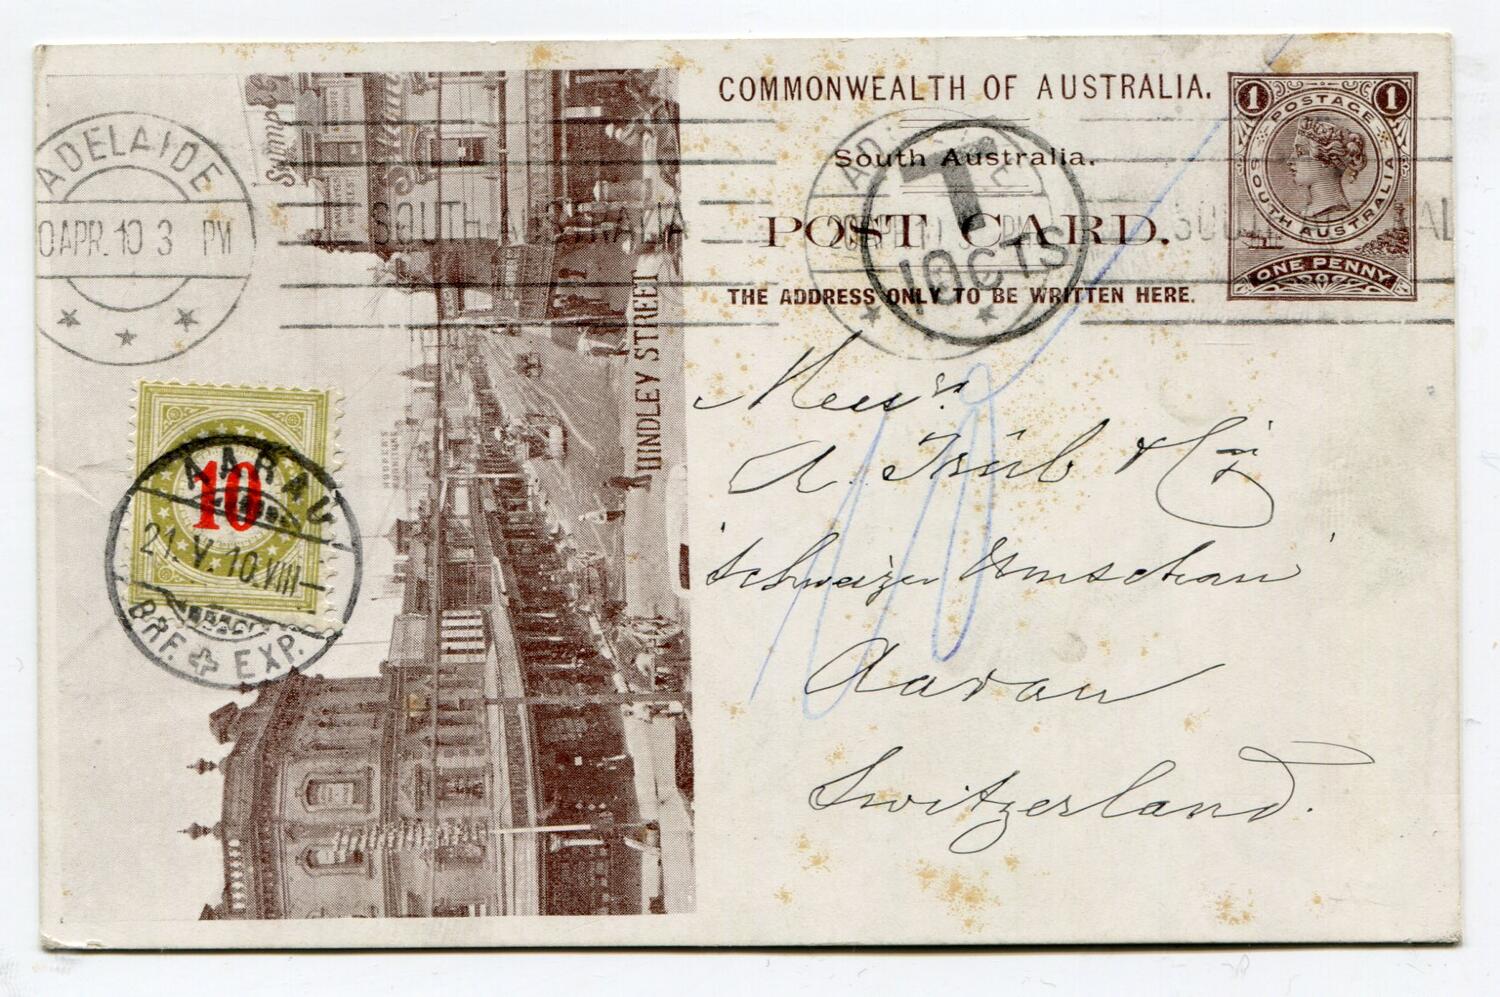 COMMONWEALTH OF AUSTRALIA.
South Australia.
POST CARD.
THE ADDRESS ONLY TO BE WRITTEN HERE.
1 POSTAGE 1
SOUTH AUSTRALIA
ONE PENNY
ADELAIDE
0 APR. 10 3 PM
SOUTH AUSTRALIA
T
10CTS
HINDLEY STREET
10
AARAU
21.V.10.VIII
BRF. EXP.
10
Messrs.
A. Trüb & Cie
'Schweizer Umschau'
Aarau
Switzerland.